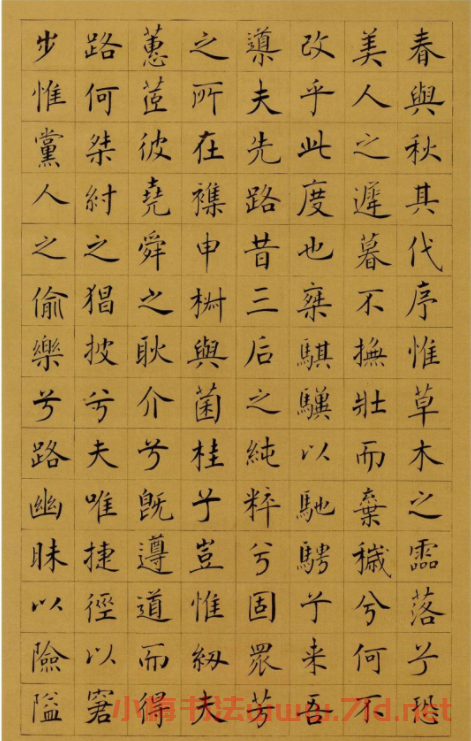 春與秋其代序惟草木之霝落兮恐
美人之遲暮不撫壯而棄穢兮何不
改乎此度也椉騏驥以馳騁兮来吾
導夫先路昔三后之純粹兮固眾芳
之所在襍申椒與菌桂兮豈惟紉夫
蕙茞彼堯舜之耿介兮既遵道而得
路何桀紂之猖披兮夫唯捷徑以窘
步惟黨人之偷樂兮路幽昧以險隘